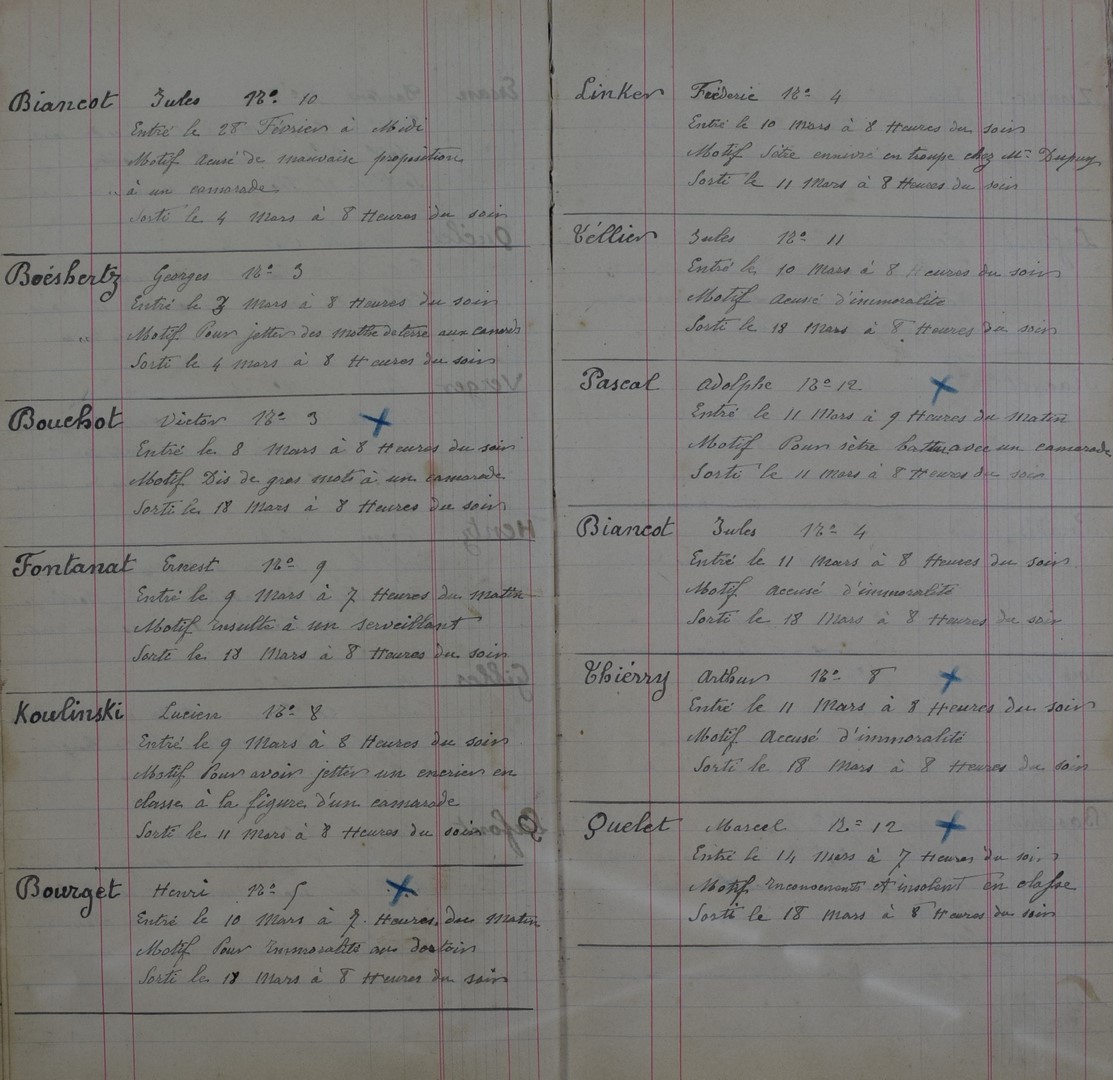 Biancot Jules No 10
Entré le 28 Février à Midi
Motif acusé de mauvaise proposition
à un camarade
Sorti le 4 Mars à 8 Heures du soir
Boéshertz Georges No 3
Entré le 3 Mars à 8 Heures du soir
Motif Pour jetter des motte de terre aux canards
Sorti le 4 mars à 8 Heures du soir
Bouchot Victor No 3
Entré le 8 Mars à 8 Heures du soir
Motif Dis de gros mots à un camarade
Sorti le 18 Mars à 8 Heures du soir
Fontanat Ernest No 9
Entré le 9 Mars à 7 Heures du matin
Motif insulte à un serveillant
Sorti le 18 Mars à 8 Heures du soir
Kowlinski Lucien No 8
Entré le 9 Mars à 8 Heures du soir
Motif Pour avoir jetter un encrier en
classe à la figure d'un camarade
Sorti le 11 Mars à 8 Heures du soir
Bourget Henri No 5
Entré le 10 Mars à 7 Heures du Matin
Motif Pour Immoralité au dortoir
Sorti le 18 Mars à 8 Heures du soir
Linker Fréderic No 4
Entré le 10 Mars à 8 Heures du soir
Motif S'être ennivré en troupe chez Mr Dupuy
Sorti le 11 Mars à 8 Heures du soir
Téllier Jules No 11
Entré le 10 Mars à 8 Heures du soir
Motif acusé d'immoralité
Sorti le 18 Mars à 8 Heures du soir
Pascal Adolphe No 12
Entré le 11 Mars à 9 Heures du Matin
Motif Pour sètre battu avec un camarade
Sorti le 11 Mars à 8 Heures du soir
Biancot Jules No 4
Entré le 11 Mars à 8 Heures du soir
Motif accusé d'immoralité
Sorti le 18 Mars à 8 Heures du soir
Thiérry Arthur No 8
Entré le 11 Mars à 8 Heures du soir
Motif Accusé d'immoralité
Sorti le 18 Mars à 8 Heures du soir
Quelet Marcel No 12
Entré le 14 Mars à 7 Heures du soir
Motif Inconvenents et insolent en classe
Sorti le 18 Mars à 8 Heures du soir